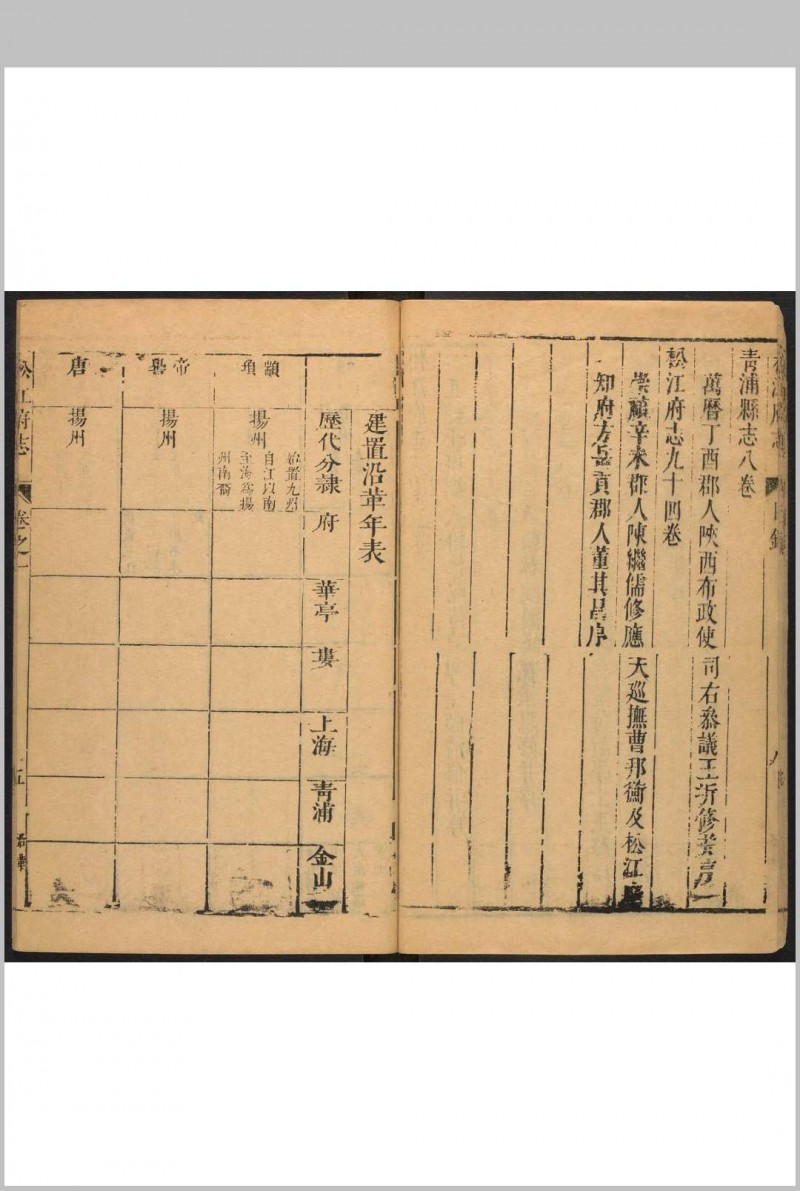 青浦縣志八卷
萬曆丁酉郡人陝西布政使司右叅議王圻修
松江府志九十四卷
崇禎辛未郡人陳繼儒修應天巡撫曹邦衡及松江
知府方岳貢郡人董其昌序
建置沿革年表
歷代分隸
府
華亭
婁
上海
青浦
金山
顓頊
揚州
始置九州
自江以南
至海爲揚
州南裔
帝嚳
揚州
唐
揚州
松江府志
卷之一
五